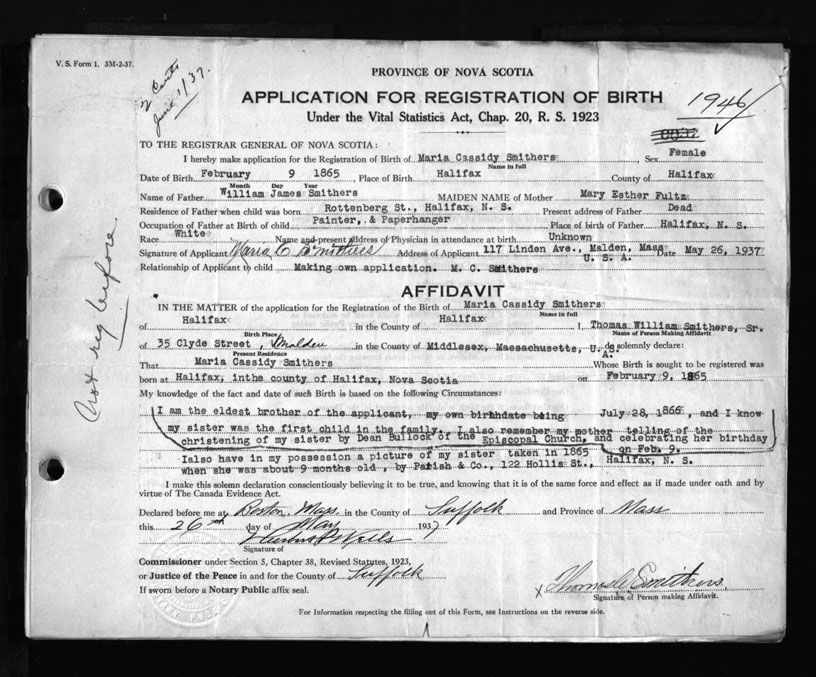 V. S. Form 1. 3M-2-37.
June 1/37.
PROVINCE OF NOVA SCOTIA
APPLICATION FOR REGISTRATION OF BIRTH
Under the Vital Statistics Act, Chap. 20, R. S. 1923
1946/
TO THE REGISTRAR GENERAL OF NOVA SCOTIA:
I hereby make application for the Registration of Birth of Maria Cassidy Smithers, Sex Female
Name in full
Date of Birth February 9 1865, Place of Birth Halifax County of Halifax
Month Day Year
Name of Father William James Smithers MAIDEN NAME of Mother Mary Esther Fultz
Residence of Father when child was born Rottenberg St., Halifax, N. S. Present address of Father Dead
Occupation of Father at Birth of child Painter, & Paperhanger Place of birth of Father Halifax, N. S.
Race White Name and present Address of Physician in attendance at birth Unknown
Signature of Applicant Maria C Smithers Address of Applicant 117 Linden Ave., Malden, Mass Date May 26, 1937
U. S. A.
Relationship of Applicant to child Making own application. M. C. Smithers
AFFIDAVIT
IN THE MATTER of the application for the Registration of the Birth of Maria Cassidy Smithers
Name in full
of Halifax in the County of Halifax I, Thomas William Smithers, Sr.
Birth Place Name of Person Making Affidavit
of 35 Clyde Street, Malden in the County of Middlesex, Massachusetts, U. S. A. do solemnly declare:
Present Residence
That Maria Cassidy Smithers Whose Birth is sought to be registered was
born at Halifax, inthe county of Halifax, Nova Scotia on February 9, 1865
My knowledge of the fact and date of such Birth is based on the following Circumstances:
I am the eldest brother of the applicant, my own birthdate being July 28, 1866, and I know
my sister was the first child in the family. I also remember my mother telling of the
christening of my sister by Dean Bullock of the Episcopal Church, and celebrating her birthday
on Feb. 9.
Ialso have in my possession a picture of my sister taken in 1865
when she was about 9 months old, by Parish & Co., 122 Hollis St., Halifax, N. S.
I make this solemn declaration conscientiously believing it to be true, and knowing that it is of the same force and effect as if made under oath and by
virtue of The Canada Evidence Act.
Declared before me at Boston, Mass. in the County of Suffolk and Province of Mass
this 26th day of May 1937
Signature of
Commissioner under Section 5, Chapter 38, Revised Statutes, 1923,
or Justice of the Peace in and for the County of Suffolk
If sworn before a Notary Public affix seal.
x Thomas W Smithers
Signature of Person making Affidavit.
For Information respecting the filling out of this Form, see Instructions on the reverse side.
Not reg before.